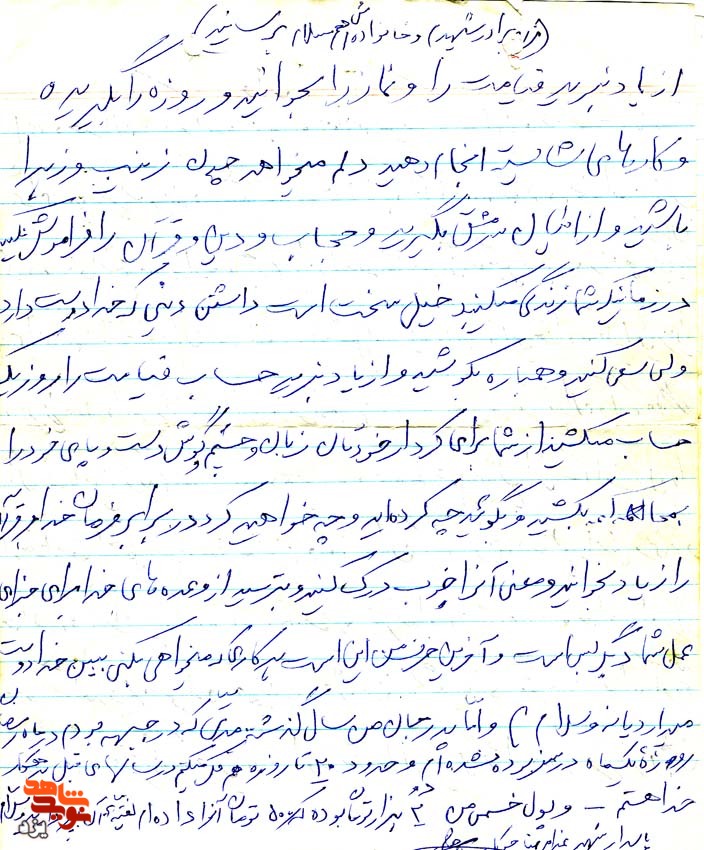 (از برادر شهید) و خانواده‌اش هم سلام برسانید)
از یاد نبرید قیامت را و نماز را بخوانید و روزه را بگیرید
و کارهای شایسته انجام دهید دلم میخواهد چون زینب و زهرا
باشید و از ایشان سرمشق بگیرید و حجاب و دین و قرآن را فراموش نکنید
در زمانیکه شما زندگی میکنید خیلی سخت است داشتن دینی که خدا دوست دارد
ولی سعی کنید و همباره بکوشید و از یاد نبرید حساب قیامت را روز یک
حساب میکشید از شما برای کردار خودتان زبان و چشم و گوش دست و پای خود را
بمحاکمه بکشید و بگوئید چه کرده‌اید و چه خواهید کرد در برابر فرمان خدا قرآن
را زیاد بخوانید و معنی آنرا خوب درک کنید و بترسید از وعده‌های خدا برای جزای
عمل شما دیگر بس است و آخرین حرف من این است هر کاری که میخواهی بکنی ببین خدا دوست
میدارد یا نه والسلام و اما پدر جان من سال گذشته مدتی که در جبهه بودم در ماه رمضان
روزهٔ یکماه در حدود ۲۰ تا روزه هم سالهای قبل بدهکار
خدا هستم - و پول خمس من هزار تومان بوده که ۵۰۰ تومان آنرا داده‌ام بقیه آن
پاسدار شهید
شاهد
نوید
یزد